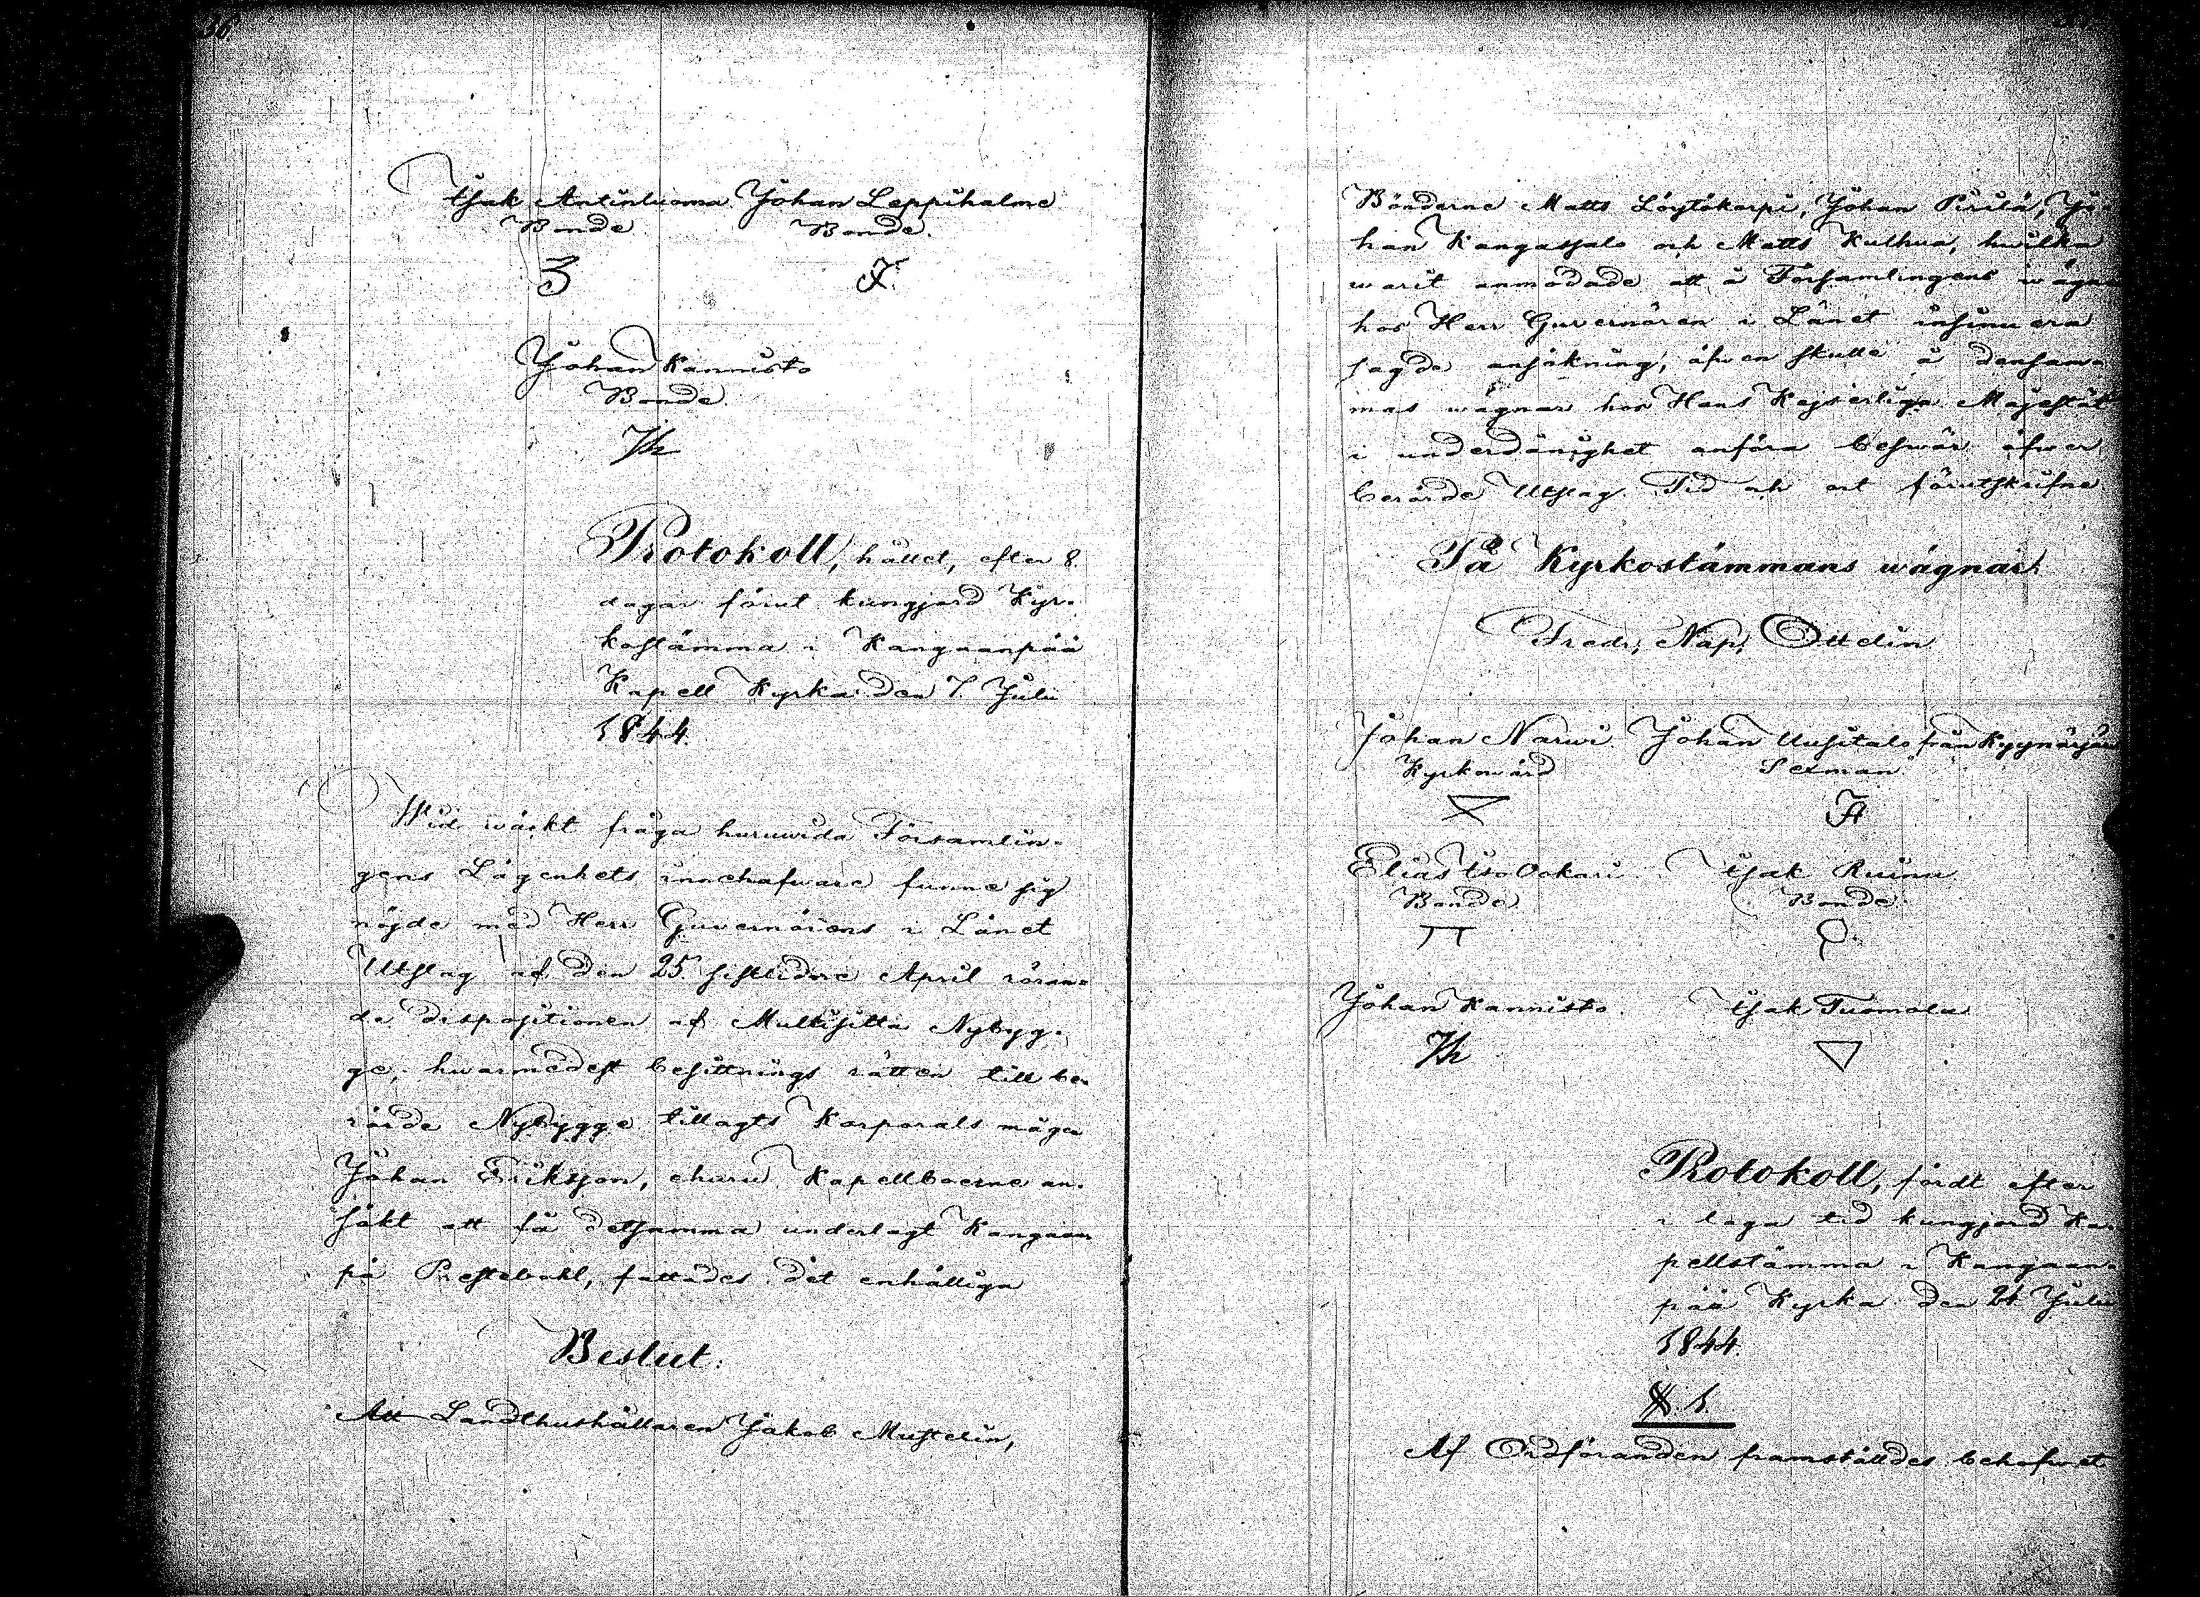 36.
Isak Antinluoma Johan Leppihalme
Bonde Bonde.
Johan Kannisto
Bonde.
Protokoll, hållet, efter 8.
dagar förut kungjord Kyr-
kostämma i Kangaanpää
Kapell Kyrka den 7. Juli
1844.
Wid wäckt fråga huruwida Församlin-
gens Lägenhets innehafware funne sig
nöjde med Herr Guvernörens i Länet
Utslag af den 25 sistlidne April röran-
de dispositionen af Multisilta Nybyg-
ge, hwarmedelst besittnings rätten till be-
rörde Nybygge tillagts Korporals mågen
Johan Eriksson, ehuru Kapellboerne an-
sökt att få detsamma underlagt Kangaan
pä Prestebohl, fattades det enhälliga
Beslut:
Att Landthushållaren Jakob Mustelin,
Bönderne Matts Löytökorpi, Johan Pirilä, Jo-
han Kangassalo och Matts Kulhua, hwilka
warit anmodade att å Församlingens wägnar
hos Herr Guvernören i Länet insinuera
sagde ansökning, äfwen skulle å densam-
mas wägnar hos Hans Kejserliga Majestät
i underdånighet anföra beswär öfwer
berörde Utslag. Tid och ort förutskrifne
På Kyrkostämmans wägnar:
Fredr. Nap. Ottelin
Johan Narwi Johan Uusitalo från Kyynärjärwi
Kyrkowärd Sexman
Elias Iso Ookari Isak Ruinu
Bonde Bonde.
Johan Kannisto. Isak Tuomola
Protokoll, fördt efter
i laga tid kungjord Ka-
pellstämma i Kangaan-
pää Kyrka den 21 Julii
1844.
§. 1.
Af Ordföranden framställdes behofwet